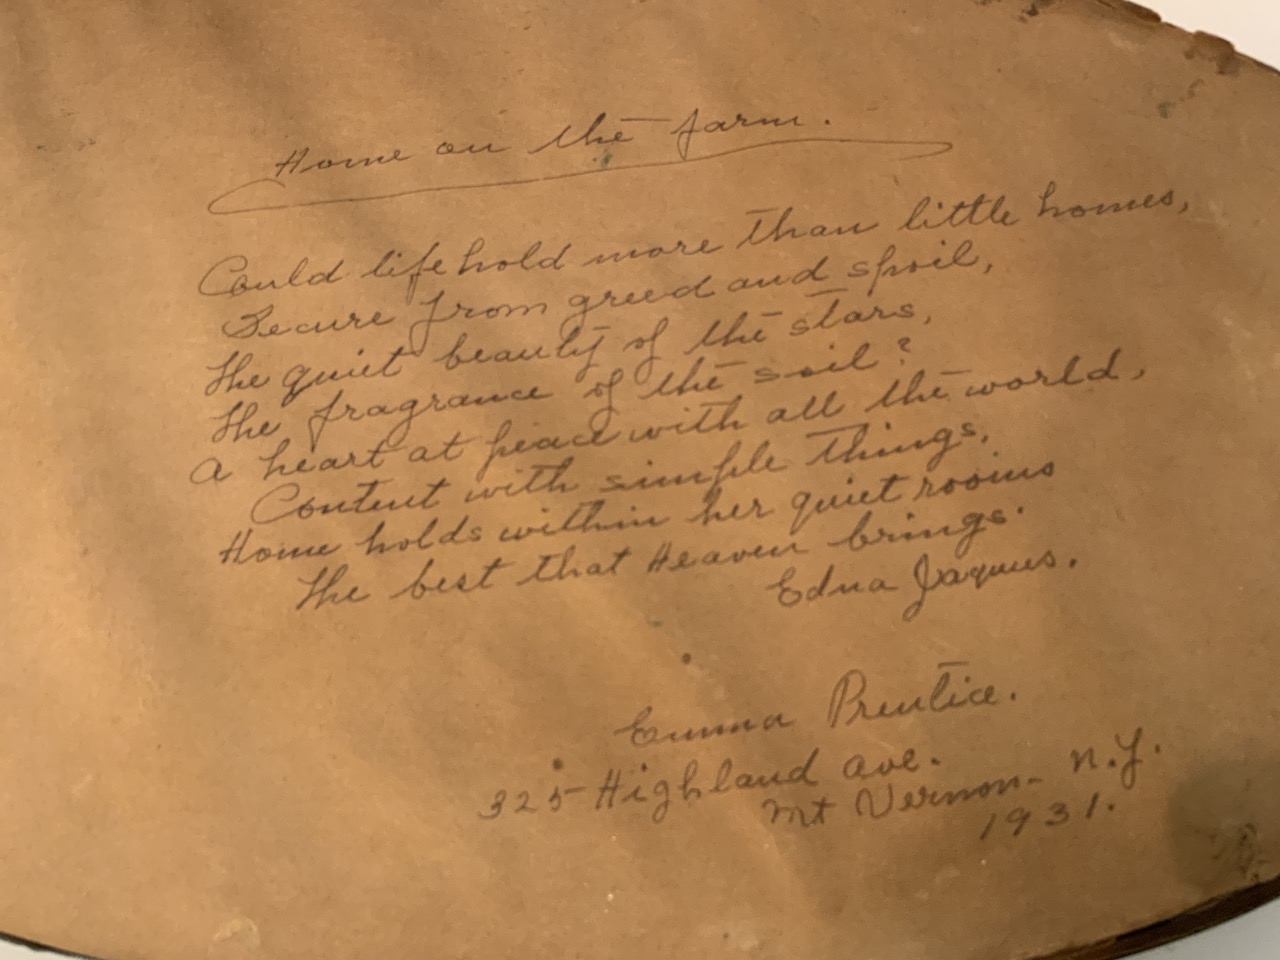 Home on the farm.
Could life hold more than little homes,
Secure from greed and spoil,
The quiet beauty of the stars,
The fragrance of the soil?
A heart at peace with all the world,
Content with simple things,
Home holds within her quiet rooms
The best that Heaven brings.
Edna Jaques.
Emma Prentice.
325 Highland Ave.
Mt Vernon - N.Y.
1931.